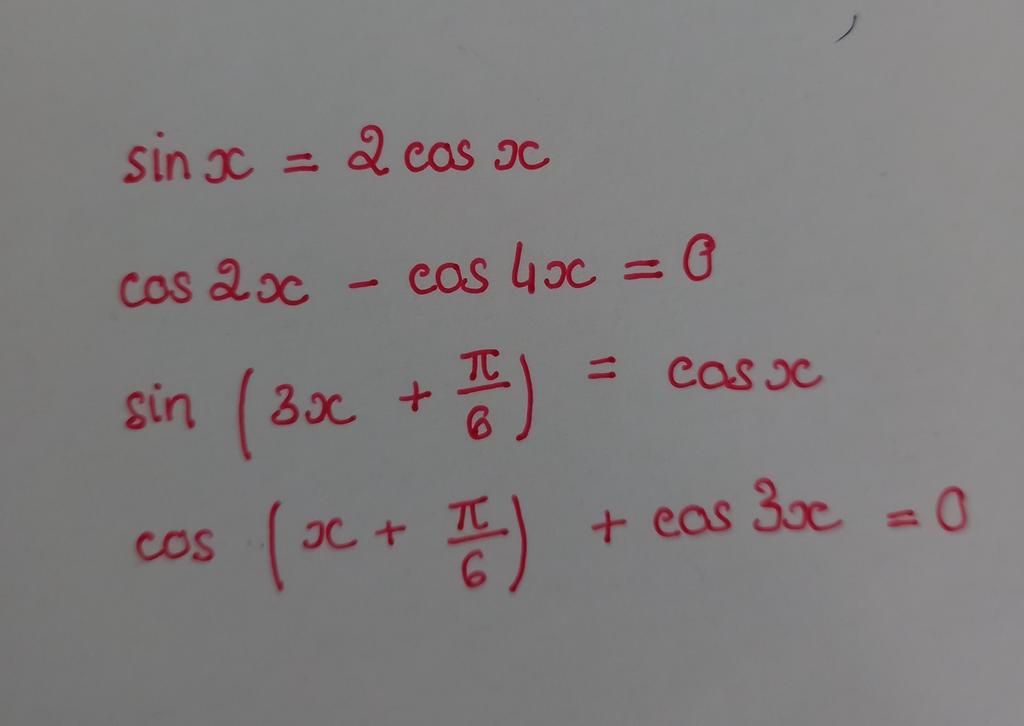 sin x = 2 cos x
cos 2x - cos 4x = 0
sin (3x + π/6) = cos x
cos (x + π/6) + cos 3x = 0